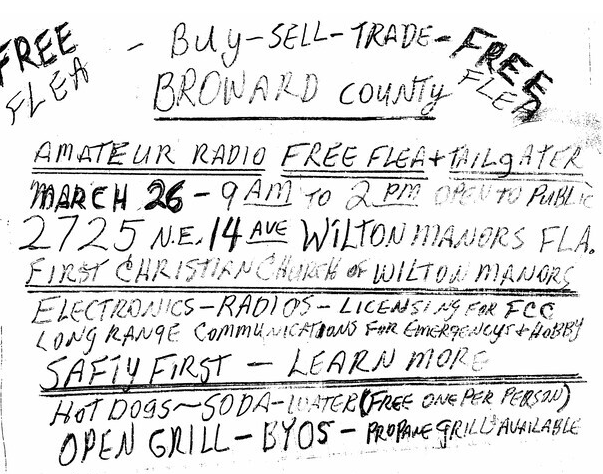 FREE FLEA
- BUY-SELL-TRADE-
FREE FLEA
BROWARD COUNTY
AMATEUR RADIO FREE FLEA + TAILgATER
MARCH 26 - 9 AM TO 2 PM OPEN TO PUBLIC
2725 N.E. 14 AVE WILTON MANORS FLA.
FIRST CHRISTIAN CHURCH OF WILTON MANORS
ELECTRONICS-RADIOS-LICENSING FOR FCC
LONG RANGE COMMUNICATIONS FOR EMERGENCYS + HOBBY
SAFTY FIRST - LEARN MORE
HOT DOGS~SODA-WATER (FREE ONE PER PERSON)
OPEN GRILL-BYOS-PROPANE GRILL AVAILABLE